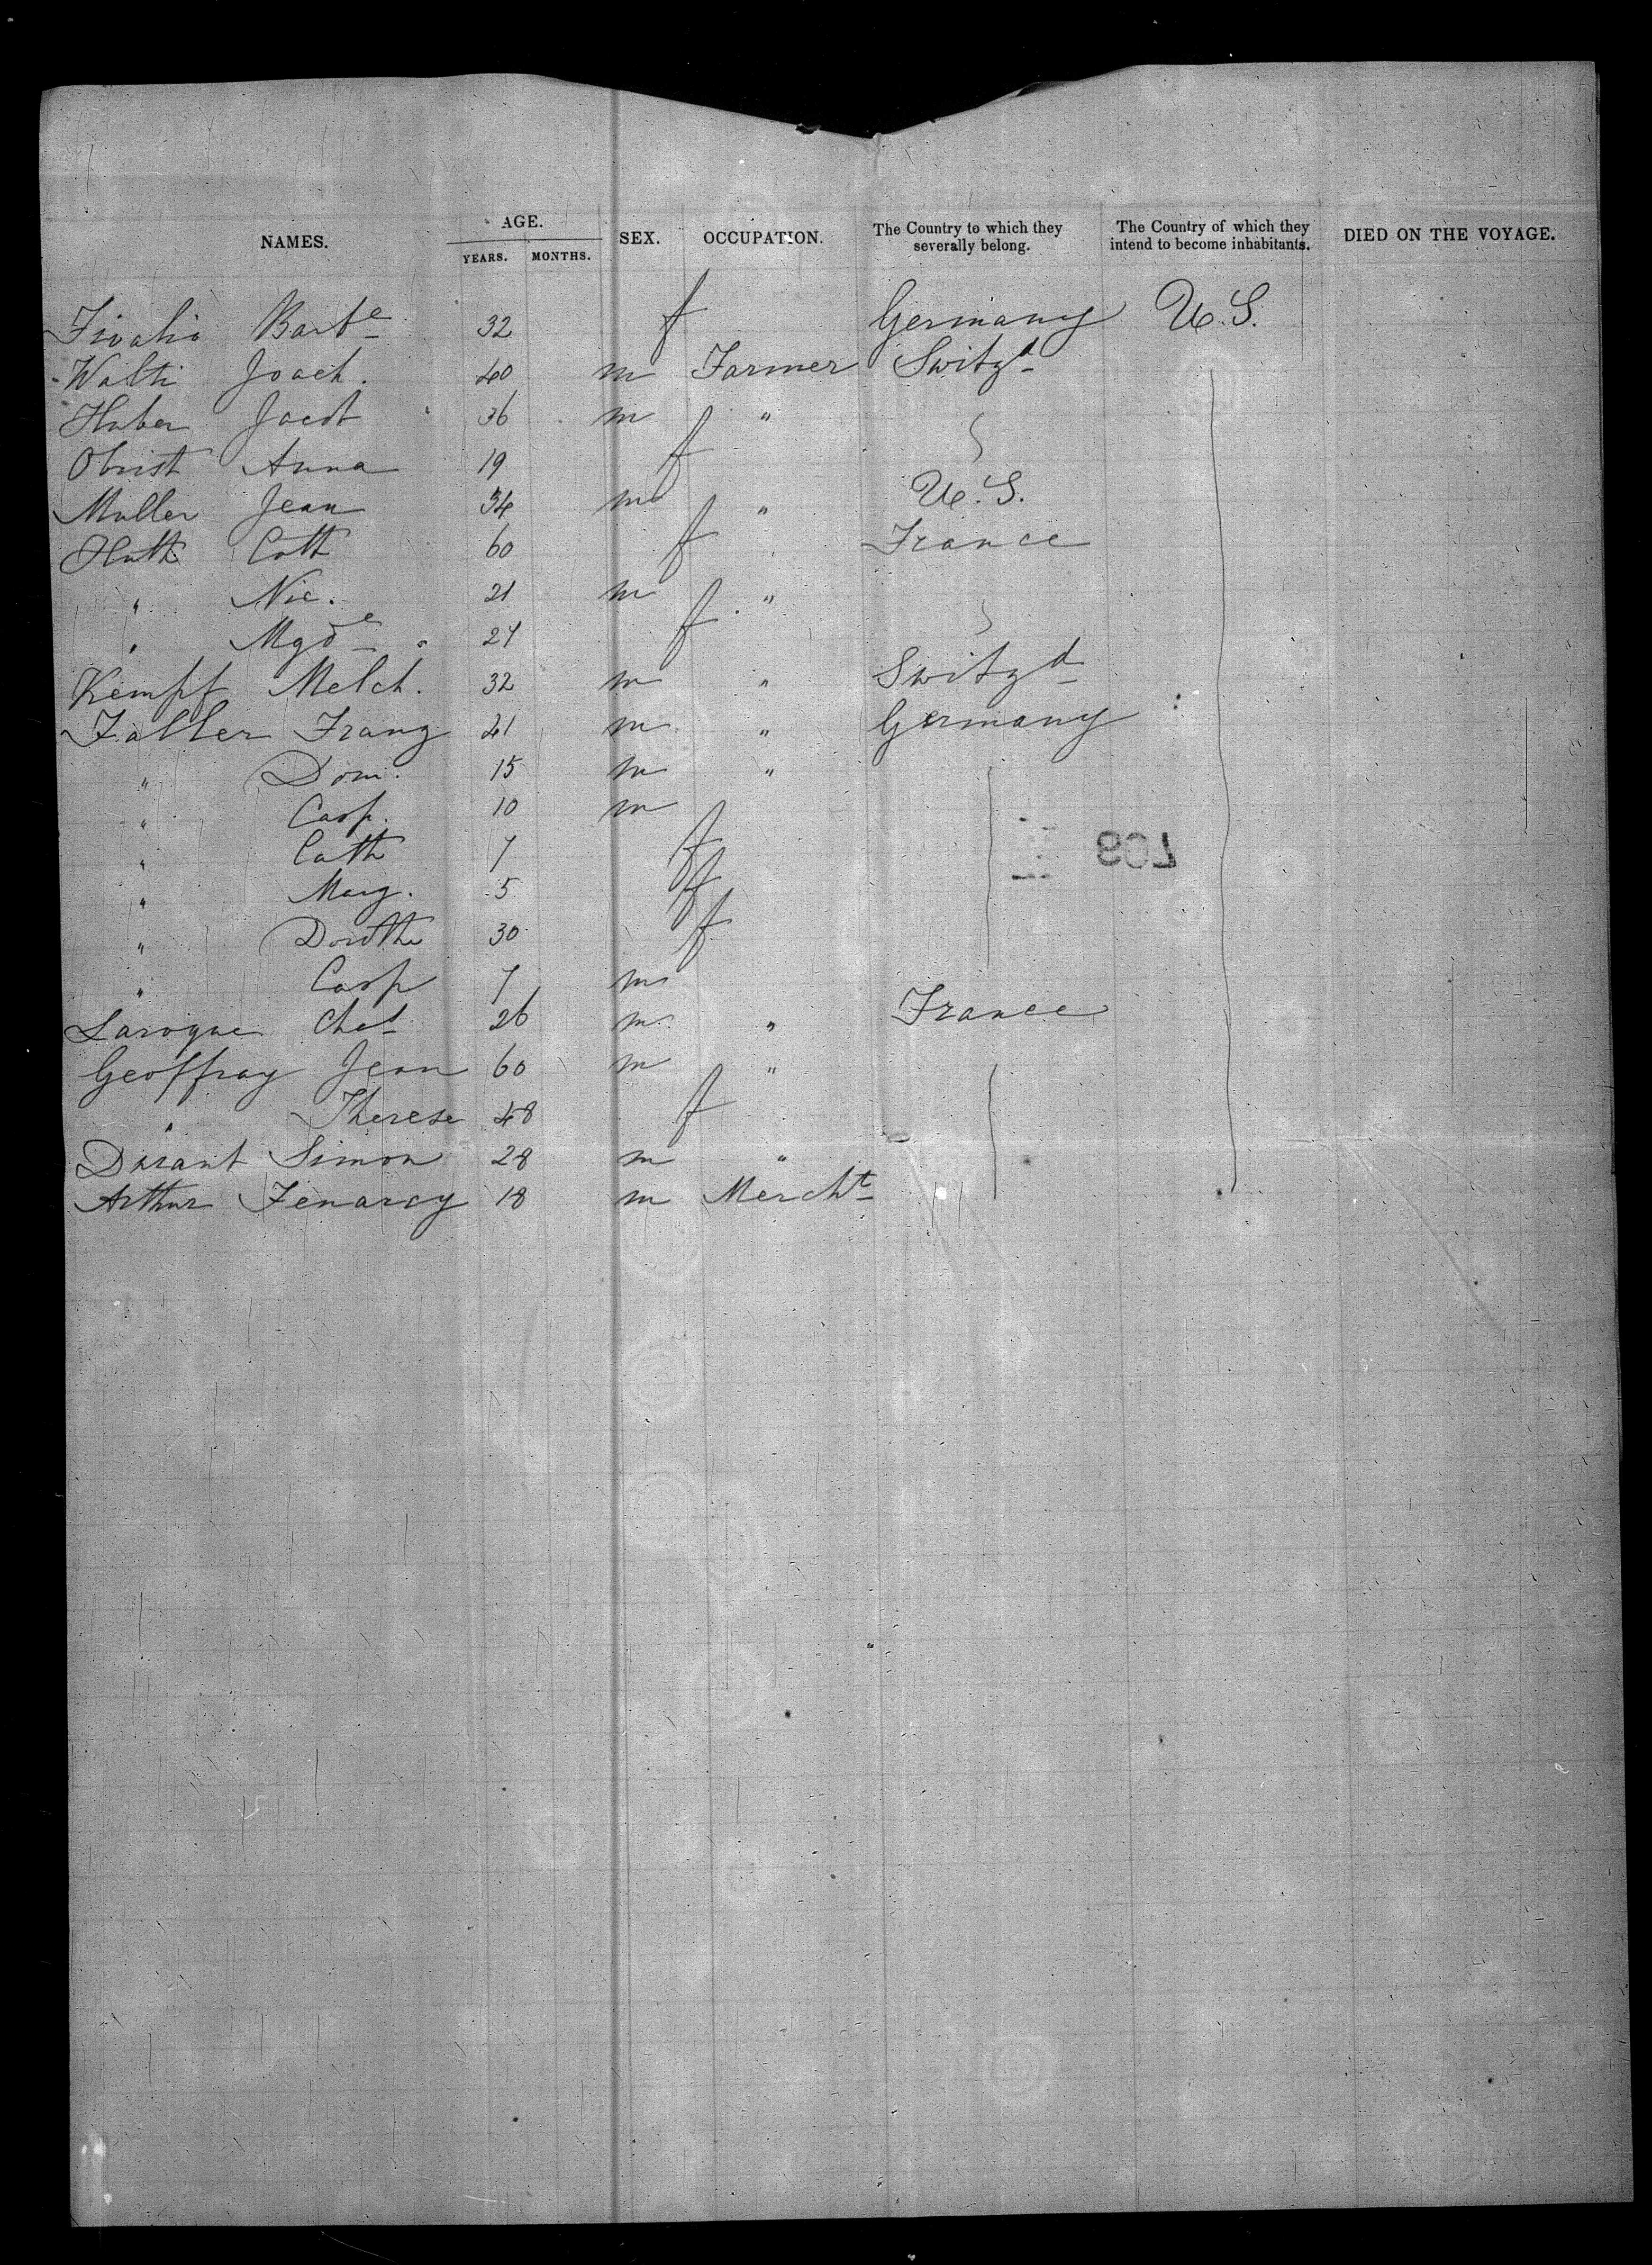 NAMES. AGE. YEARS. MONTHS. SEX. OCCUPATION. The Country to which they severally belong. The Country of which they intend to become inhabitants. DIED ON THE VOYAGE.
Barbe 32 f Germany U.S.
Walti Joach. 40 m Farmer Switzd
Huber Jacob 36 m "
Obrist Anna 19 f
Muller Jean 34 m " U.S.
Huth Cath 60 f France
" Nic. 21 m "
" Mgde f
Kempf Melch. 32 m " Switzd
Faller Franz 41 m " Germany
" Dom. 15 m "
" Casp. 10 m
" Cath 7 f
" Marg. 5 f
" Dorothe 30 f
" Casp 7 m
Laroque Chas 26 m " France
Geoffray Jean 60 m "
" Therese 48 f
Durant Simon 28 m "
Arthur Fenarcy 18 m Mercht